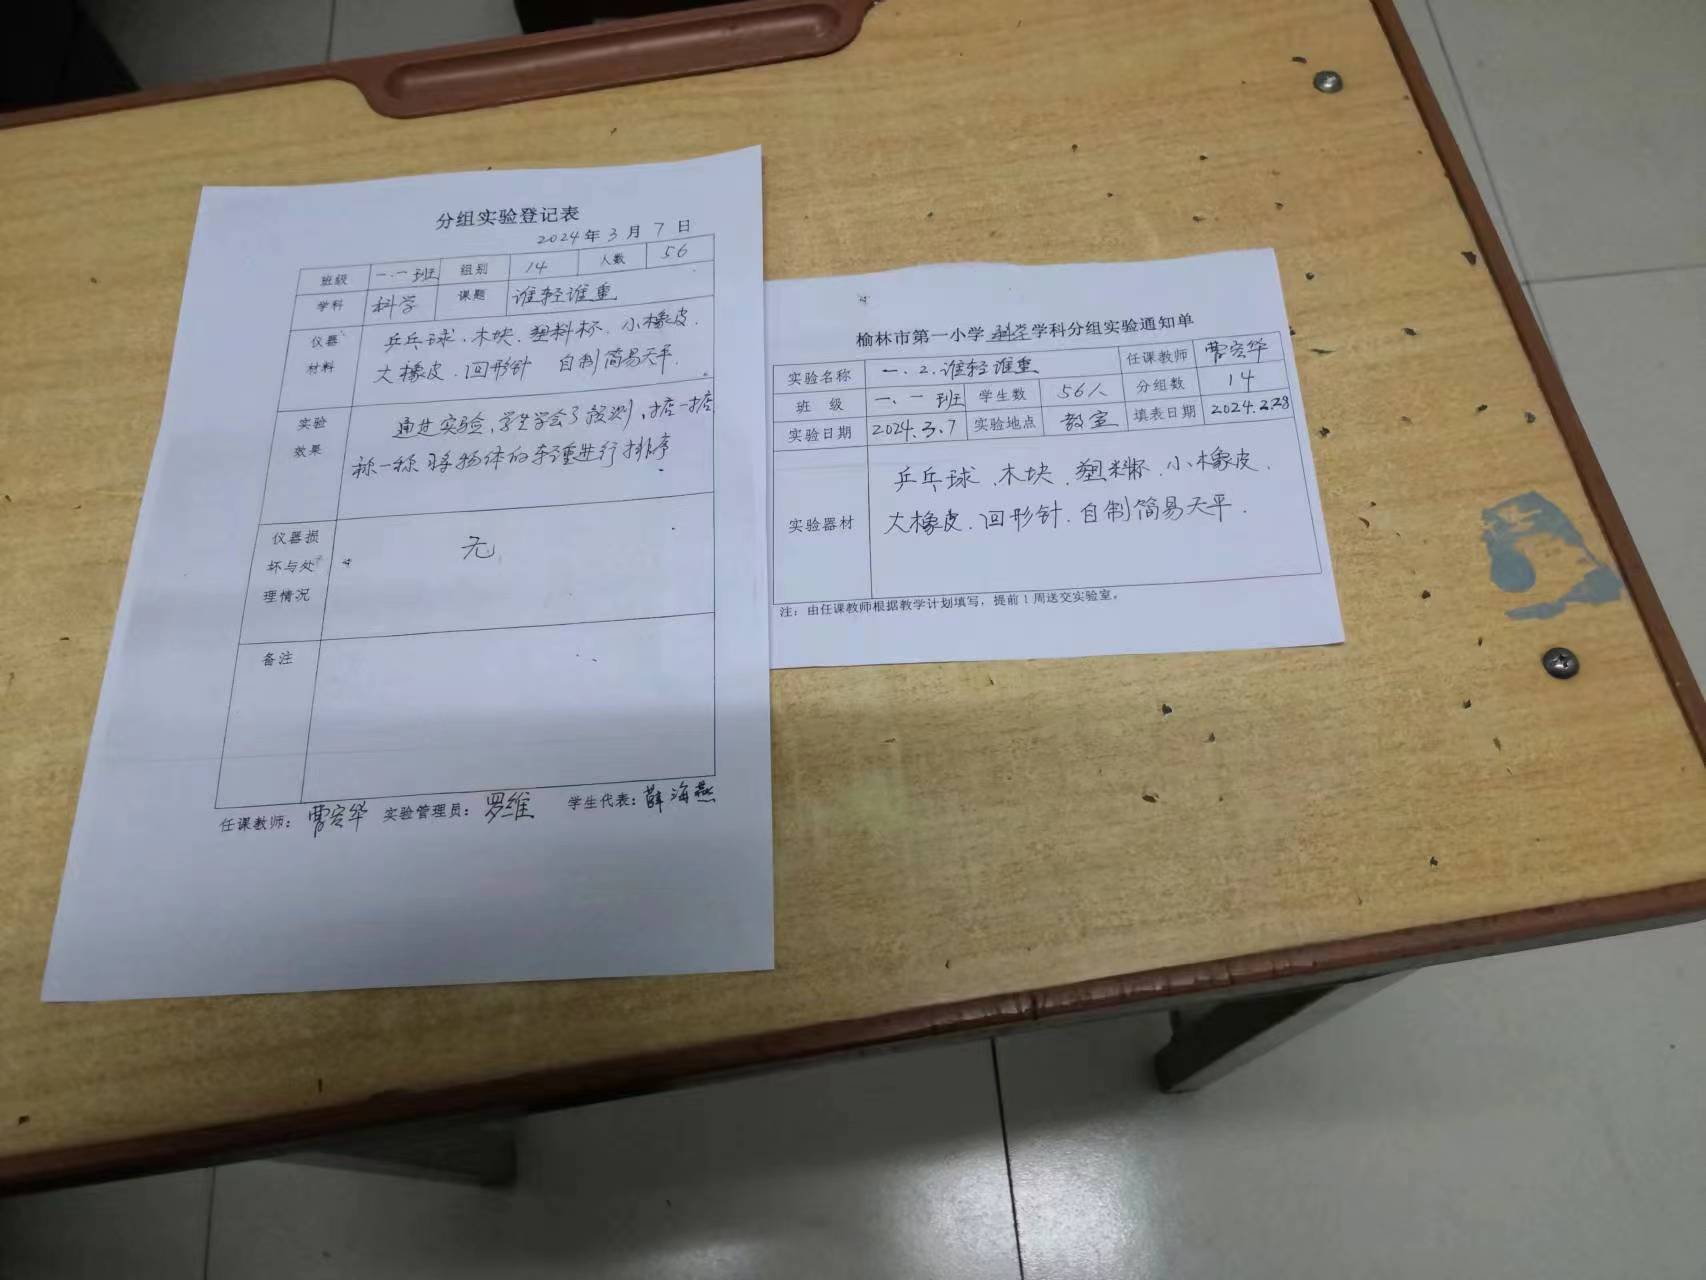 分组实验登记表
2024年3月7日
班级 一.一班 组别 14 人数 56
学科 科学 课题 谁轻谁重
仪器 乒乓球、木块、塑料杯、小橡皮、
材料 大橡皮、回形针 自制简易天平.
实验 通过实验,学生学会了预测,掂一掂
效果 称一称 将物体的轻重进行排序
仪器损
坏与处 无
理情况
备注
任课教师: 曹宏华 实验管理员: 罗维 学生代表: 薛海燕
榆林市第一小学 科学 学科分组实验通知单
实验名称 一.2.谁轻谁重 任课教师 曹宏华
班 级 一、一班 学生数 56人 分组数 14
实验日期 2024.3.7 实验地点 教室 填表日期 2024.2.28
乒乓球、木块、塑料杯、小橡皮、
实验器材 大橡皮、回形针、自制简易天平.
注:由任课教师根据教学计划填写,提前1周送交实验室。